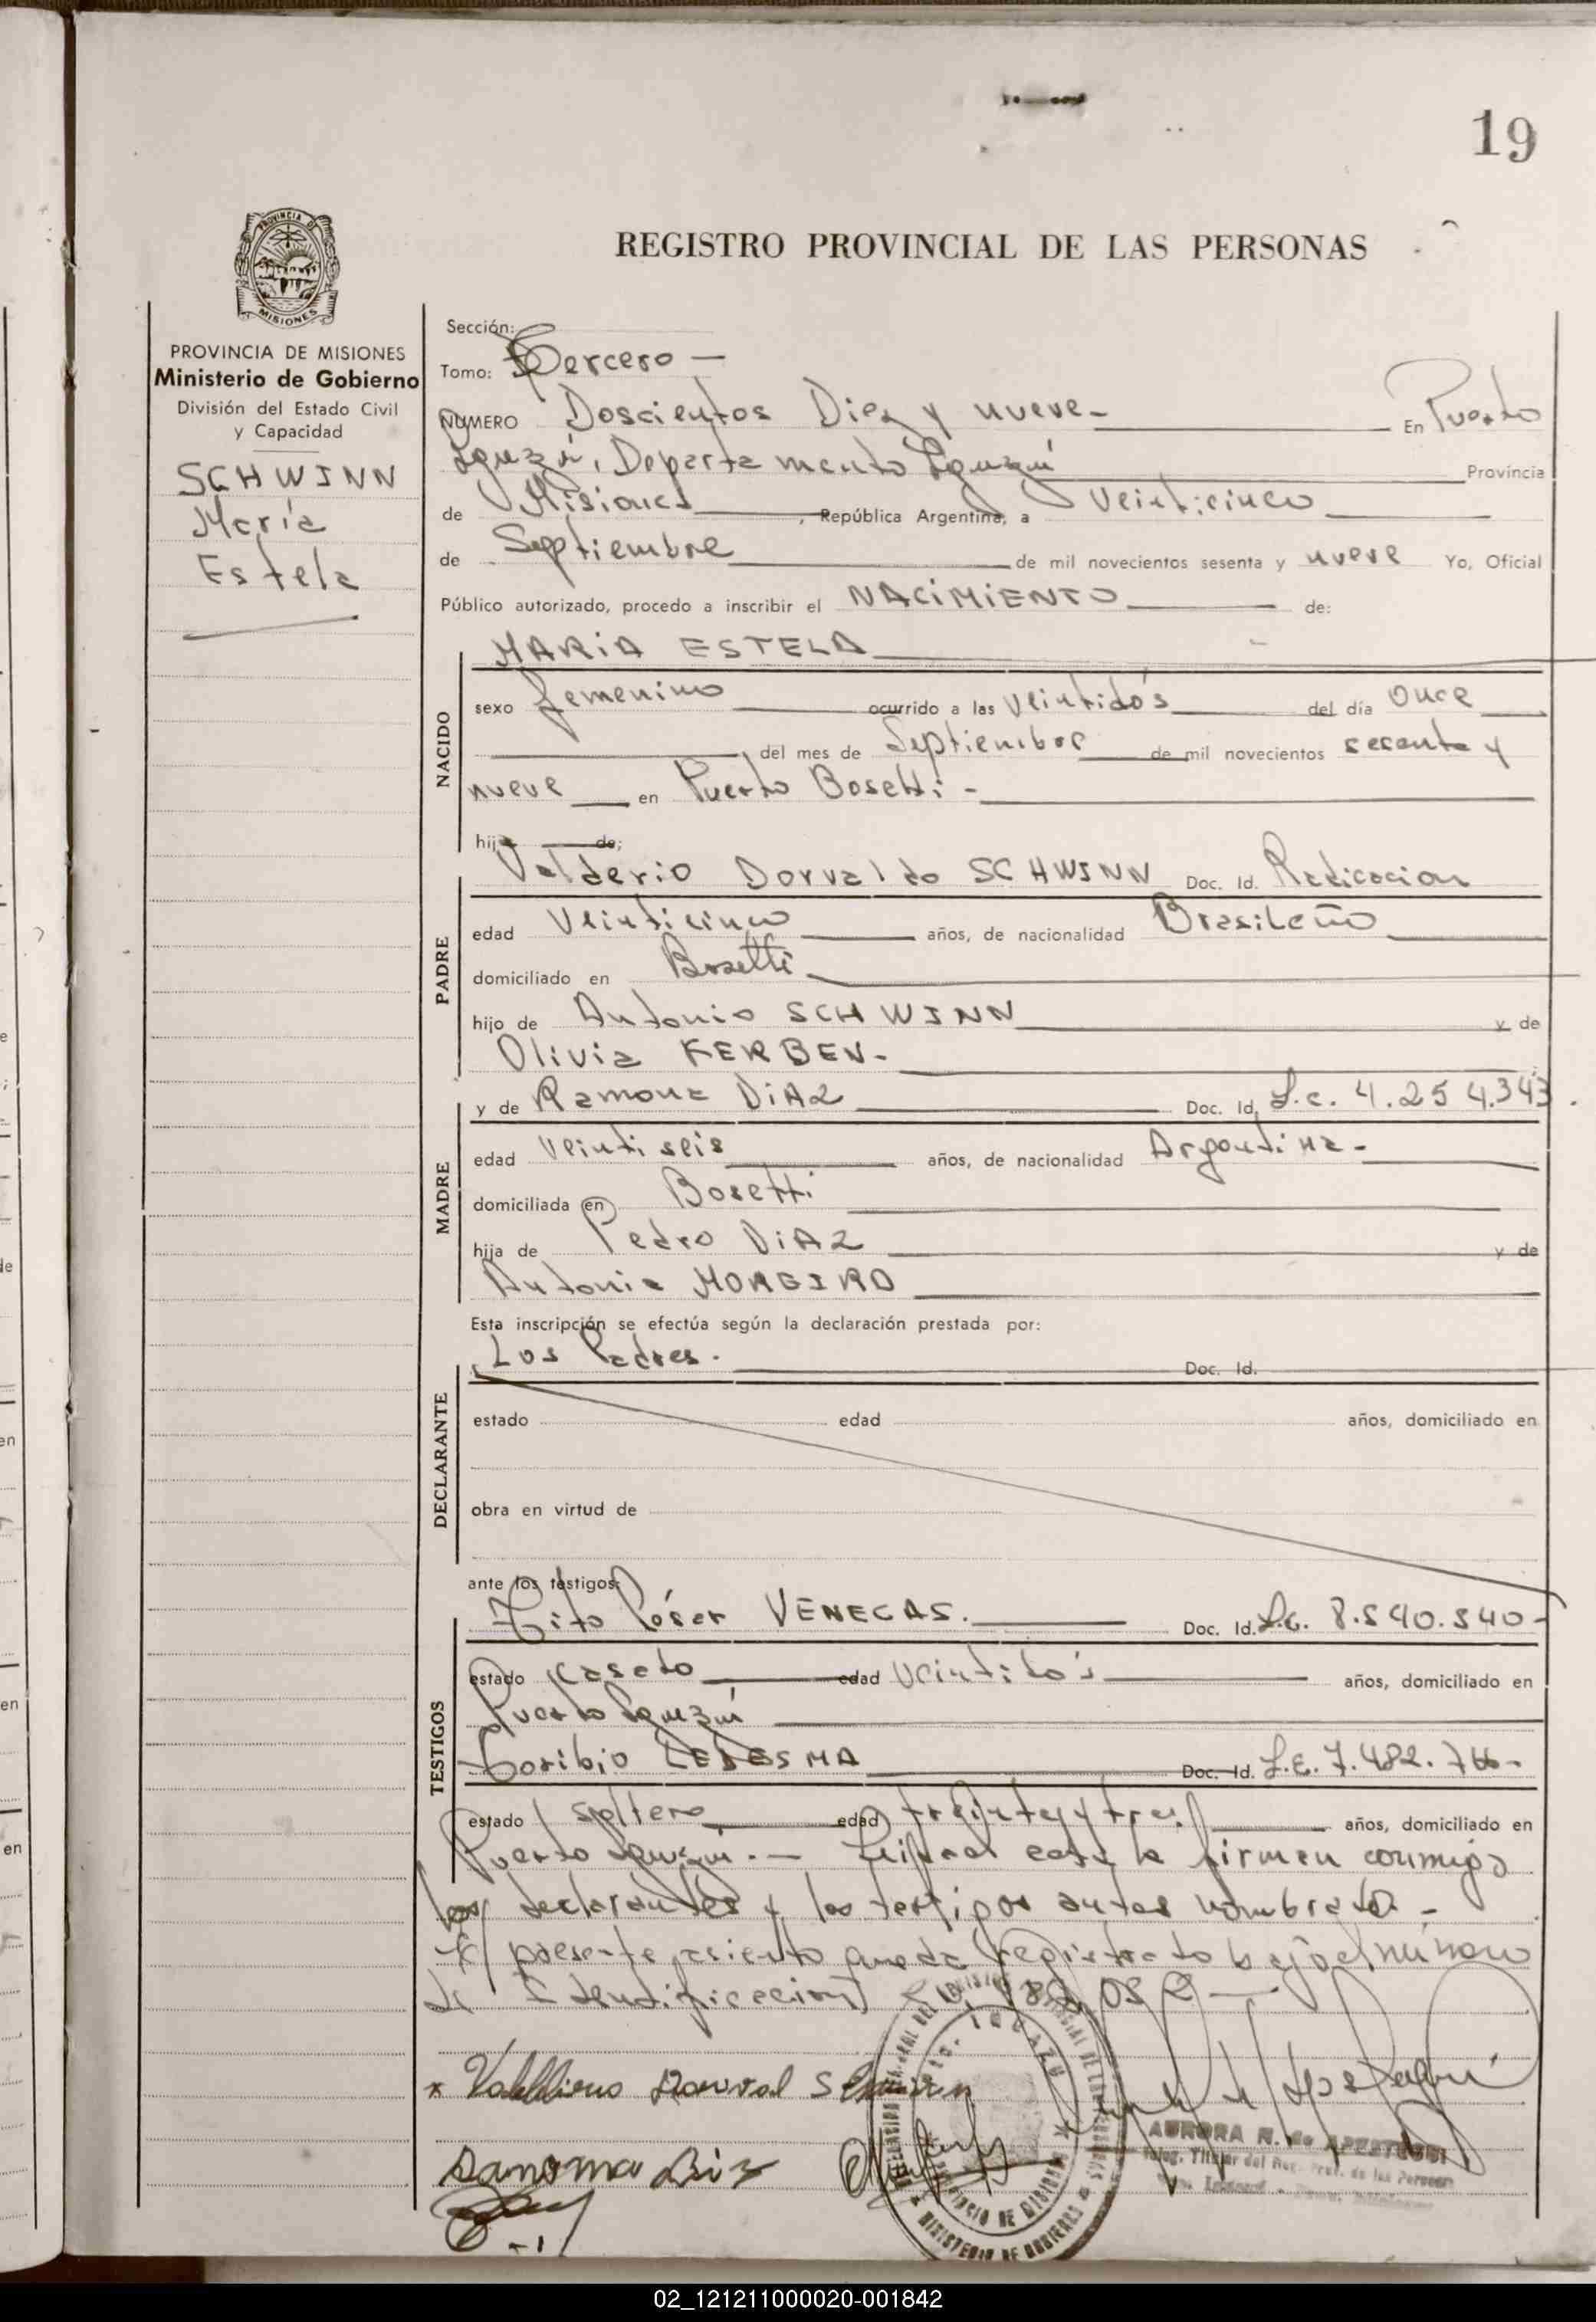 19
PROVINCIA DE
MISIONES
REGISTRO PROVINCIAL DE LAS PERSONAS
PROVINCIA DE MISIONES
Ministerio de Gobierno
División del Estado Civil
y Capacidad
SCHWINN
María
Estela
Sección:
Tomo: Tercero —
NUMERO Doscientos Diez y nueve - En Puerto
Iguazú, Departamento Iguazú Provincia
de Misiones, República Argentina, a Veinticinco
de Septiembre de mil novecientos sesenta y nueve Yo, Oficial
Público autorizado, procedo a inscribir el NACIMIENTO de:
MARIA ESTELA
NACIDO
sexo femenino ocurrido a las veintidós del día once
del mes de Septiembre de mil novecientos sesenta y
nueve en Puerto Bosetti -
hija de;
PADRE
Valderio Dorvaldo SCHWINN Doc. Id. Radicacion
edad Veinticinco años, de nacionalidad Brasileño
domiciliado en Bosetti
hijo de Antonio SCHWINN y de
Olivia KERBEN-
MADRE
y de Ramona DIAZ Doc. Id. L.c. 4.254.343.
edad Veintiseis años, de nacionalidad Argentina -
domiciliada en Bosetti
hija de Pedro DIAZ y de
Antonia MOREIRO
Esta inscripción se efectúa según la declaración prestada por:
DECLARANTE
Los Padres. Doc. Id.
estado edad años, domiciliado en
obra en virtud de
ante los testigos:
TESTIGOS
Tito César VENEGAS. Doc. Id. 8.540.540-
estado casado edad Veintidós años, domiciliado en
Puerto Iguazú
Toribio LEDESMA Doc. Id. L.E. 7.482.
estado soltero edad treinta y tres años, domiciliado en
Puerto Iguazú. — Leida el acta la firman conmigo
los declarantes y los testigos antes nombrados -
El presente asiento queda registrado bajo el número
de Identificacion
Schwinn
Ramona Diaz
AURORA N. de
Titular del Reg. Prov. de las Personas
PROVINCIA DE MISIONES
MINISTERIO DE GOBIERNO
02_121211000020-001842